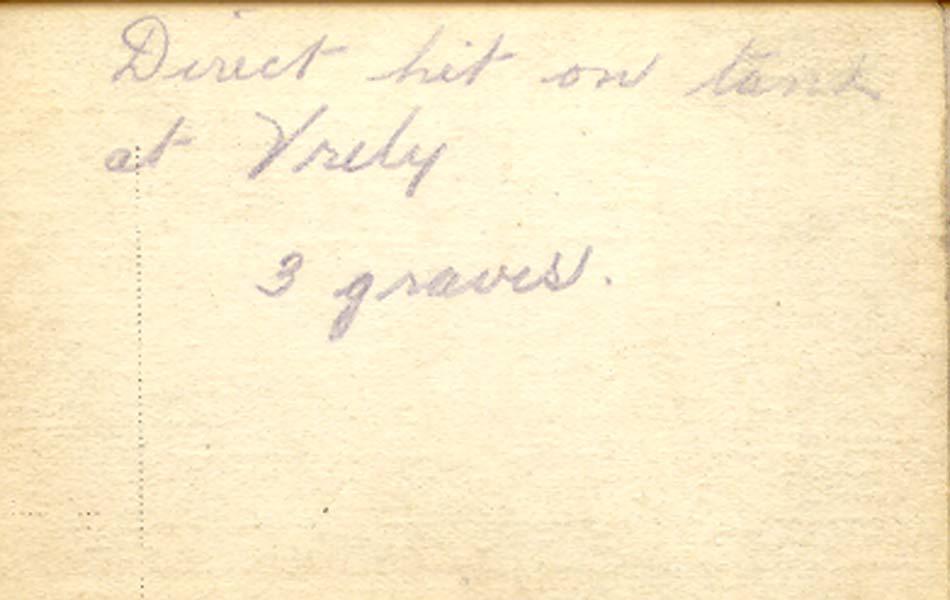 Direct hit on tank
at Vrely
3 graves.